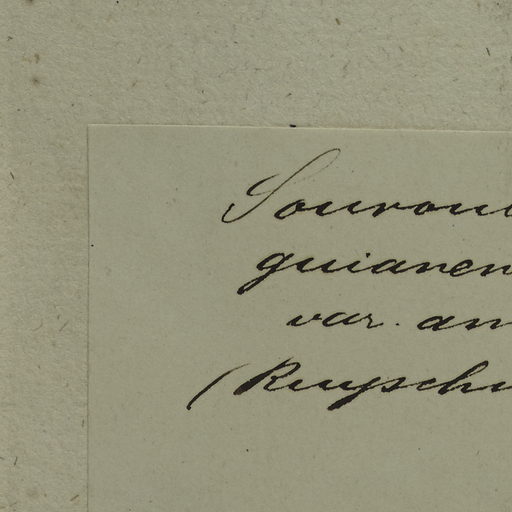 Sourou
guianen
var. am
(Ruysch